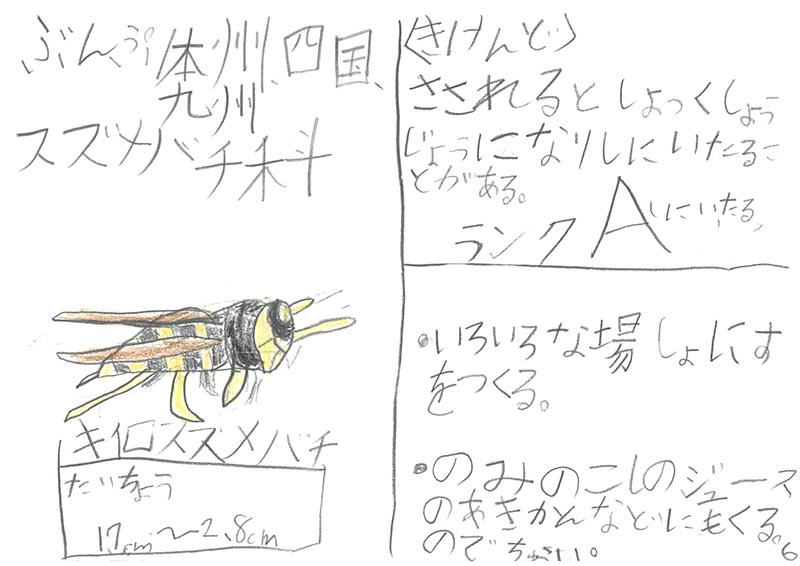 ぶんぷ 体州、四国、
九州
スズメバチ科
キイロスズメバチ
たいちょう
1.7cm〜2.8cm
〈きけんど〉
さされるとしょっくしょう
じょうになりしにいたるこ
とがある。
ランク A しにいたる、
•いろいろな場しょにす
をつくる。
•のみのこしのジュース
のあきかんなどにもくる。
ので
6